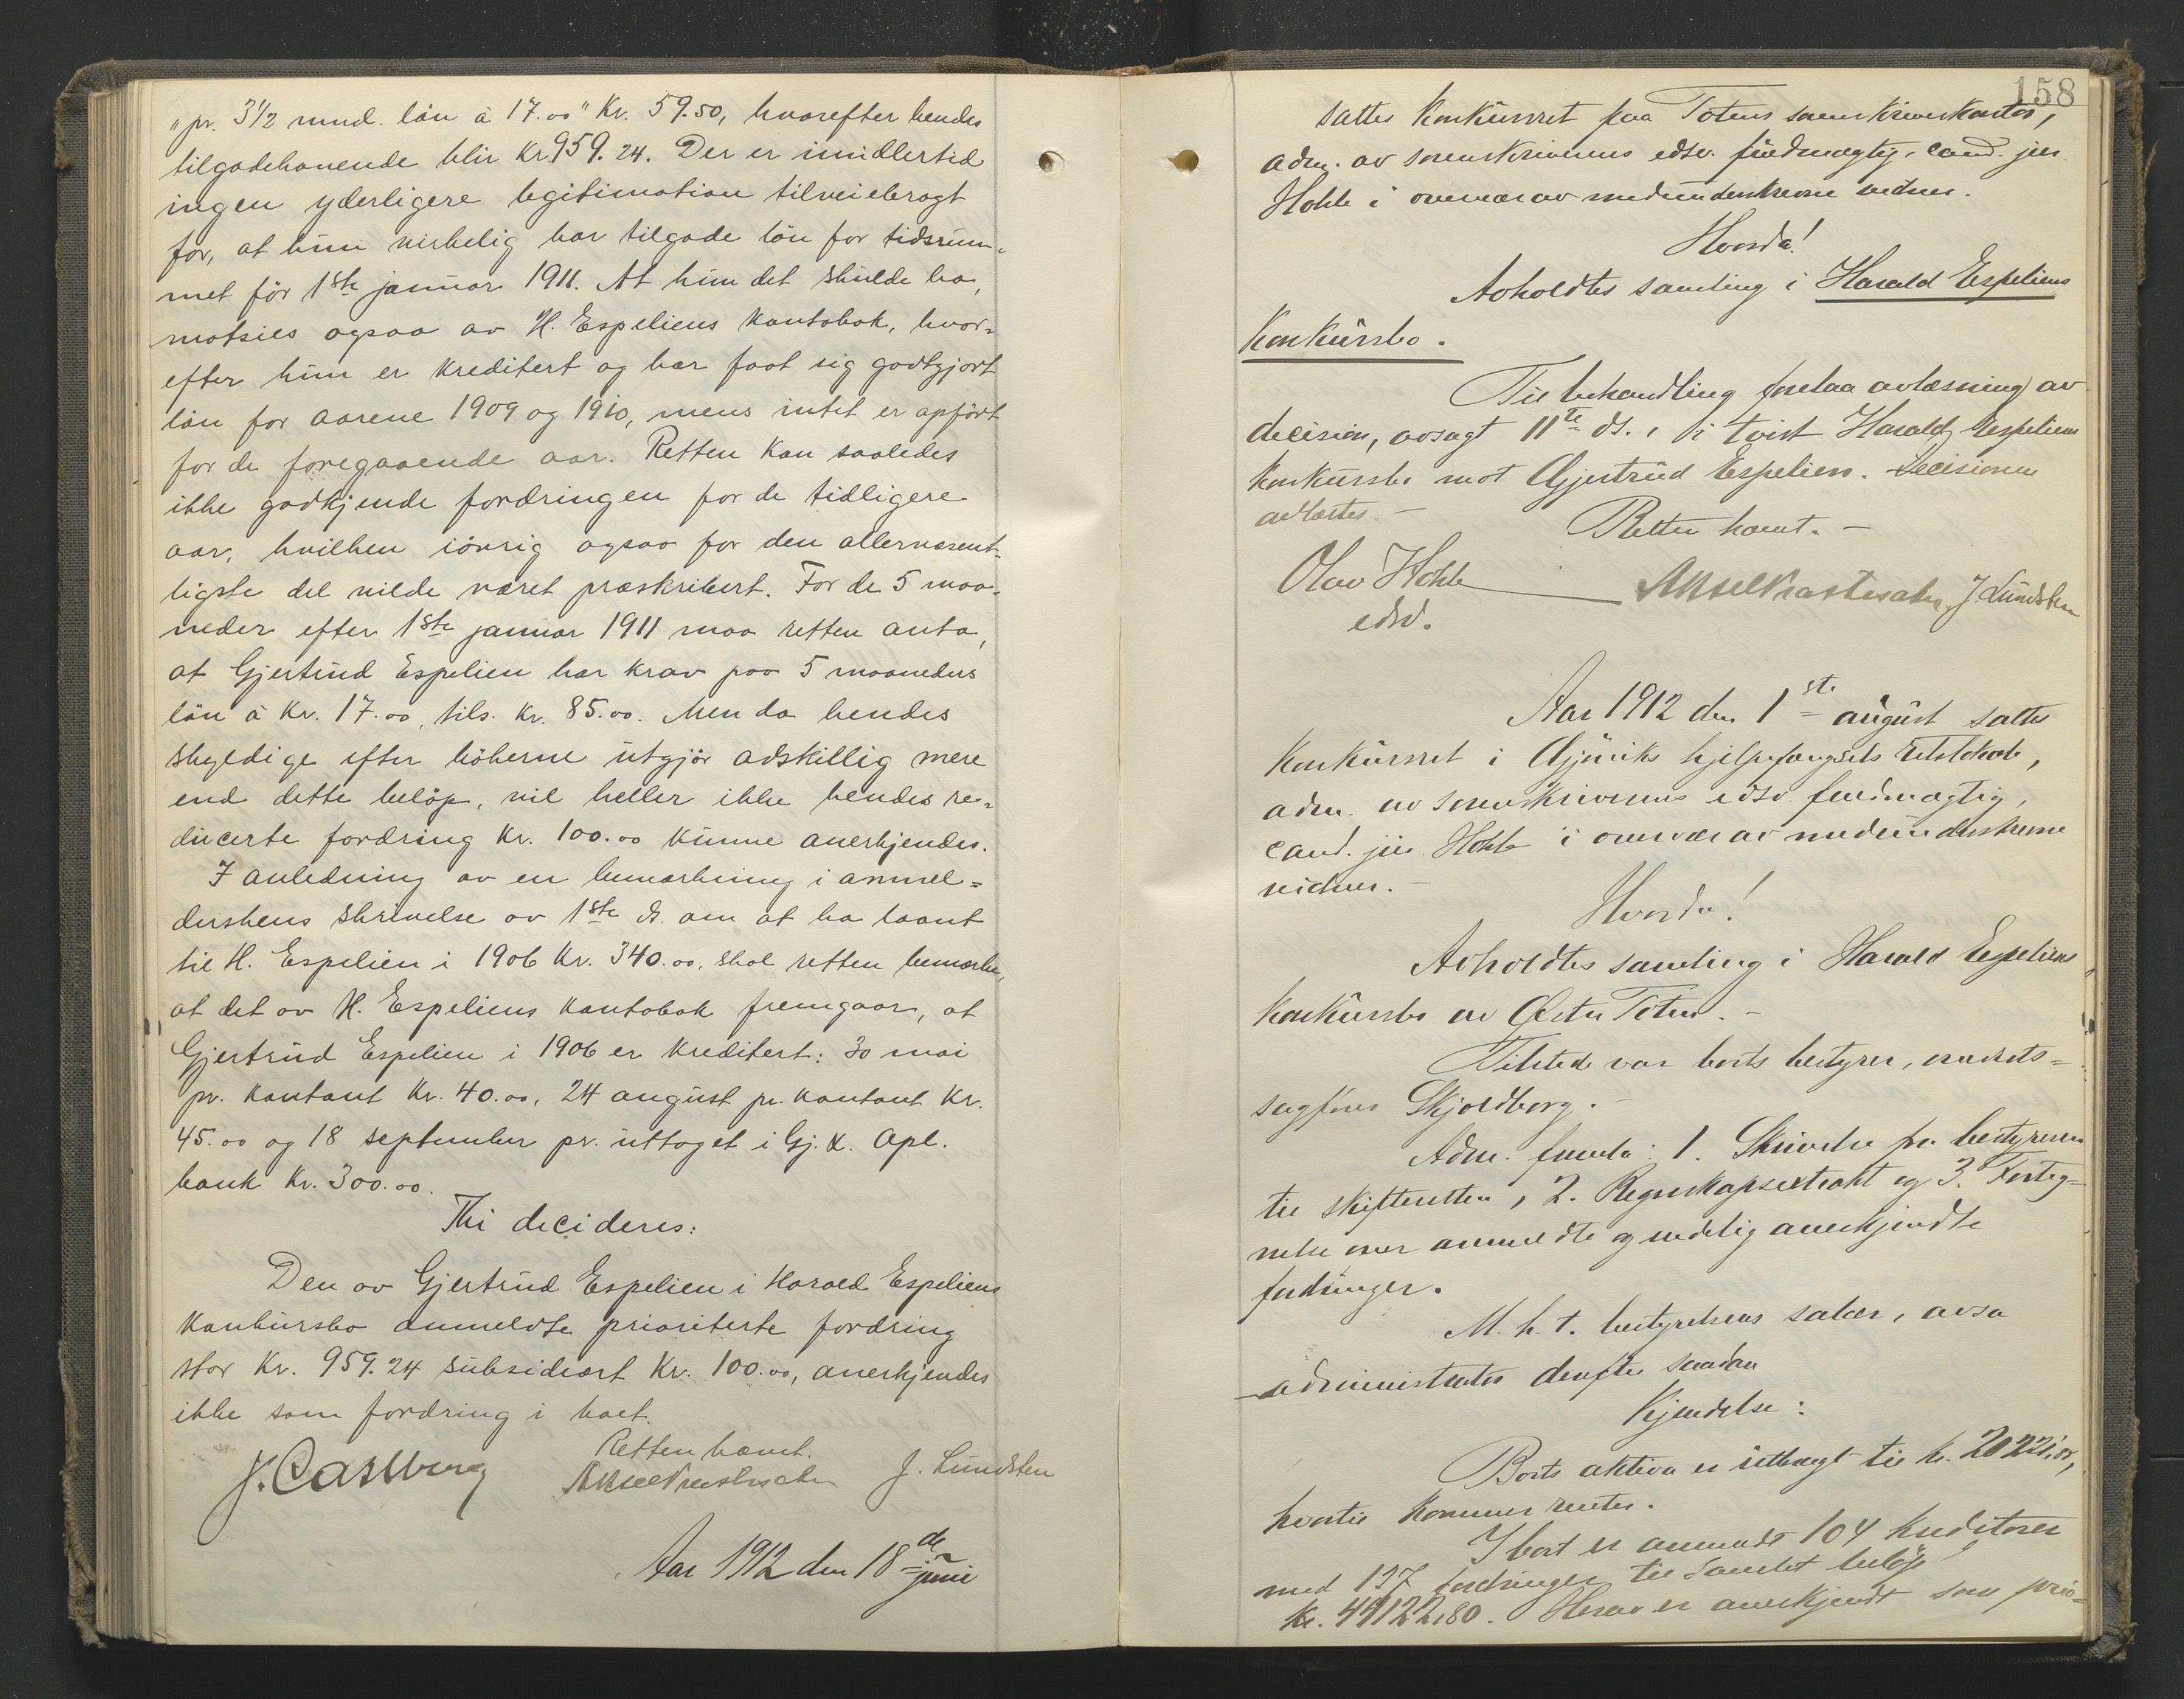 "pr. 3½ mnd. lön à 17.00" Kr. 59.50, hvorefter hendes
tilgodehavende blir Kr. 959.24. Der er imidlertid
ingen yderligere legitimation tilveiebragt
for, at hun virkelig har tilgode lön for tidsrum-
met för 1ste januar 1911. At hun det skulde ha,
motsies ogsaa av H. Espeliens kontobok, hvor=
efter hun er kreditert og har faat sig godtgjort
lön for aarene 1909 og 1910, mens intet er opfört
for de foregaaende aar. Retten kan saaledes
ikke godkjende fordringen for de tidligere
aar, hvilken iövrig ogsaa for den allervæsent-
ligste del vilde været præskribert. For de 5 maa-
neder efter 1ste januar 1911 maa retten anta,
at Gjertrud Espelien har krav paa 5 maaneders
lön à Kr. 17.00, tils. Kr. 85.00. Men da hendes
skyldige efter bökerne utgjör adskillig mere
end dette belöp, vil heller ikke hendes re-
ducerte fordring Kr. 100.00 kunne anerkjendes.
I anledning av en bemerkning i anmel=
derskens skrivelse av 1ste ds. om at ha laant
til H. Espelien i 1906 Kr. 340.00, skal retten bemerke,
at det av H. Espeliens kontobok fremgaar, at
Gjertrud Espelien i 1906 er kreditert: 30 mai
pr. kontant Kr. 40.00, 24 august pr. kontant Kr.
45.00 og 18 september pr. uttaget i Gj. & Opl.
bank Kr. 300.00.
Thi decideres:
Den av Gjertrud Espelien i Harald Espeliens
konkursbo anmeldte prioriterte fordring
stor Kr. 959.24 subsidiært Kr. 100.00, anerkjendes
ikke som fordring i boet.
Retten hævet.
J. Carlberg J. Lundsten
Aar 1912 den 18de juni
158
sattes konkursret paa Totens sorenskriverkontor,
adm. av sorenskriverens edsv. fuldmægtig, cand. jur.
Hohle i overvær av medunderskrevne vidner.
Hvorda!
Avholdtes samling i Harald Espeliens
konkursbo.
Til behandling forelaa avlæsning av
decision, avsagt 11te ds., i tvist Harald Espeliens
konkursbo mot Gjertrud Espelien. Decisionen
avlæstes.-
Retten hævet.-
Olav Hohle J. Lundsten
edsv.
Aar 1912 den 1ste august sattes
konkursret i Gjöviks hjelpefængsels retslokale,
adm. av sorenskriverens edsv. fuldmægtig,
cand. jur. Hohle i overvær av medunderskrevne
vidner.-
Hvorda!
Avholdtes samling i Harald Espeliens
konkursbo av Östre Toten.-
Tilstede var boets bestyrer, overrets=
sagförer Skjoldborg.-
Adm. fremla: 1. Skrivelse fra bestyreren
til skifteretten, 2. Regnskapsextrakt og 3. Forteg=
nelse over anmeldte og endelig anerkjendte
fordringer.
M.h.t. bestyrelsens salær, avsa
administrator derefter saadan
Kjendelse:
Boets aktiva er utbragt til kr. 20221,08,
hvortil kommer renter.
I boet er anmeldt 104 kreditorer
med 137 fordringer til samlet belöp
kr. 44122,80. Herav er anerkjendt som prio=